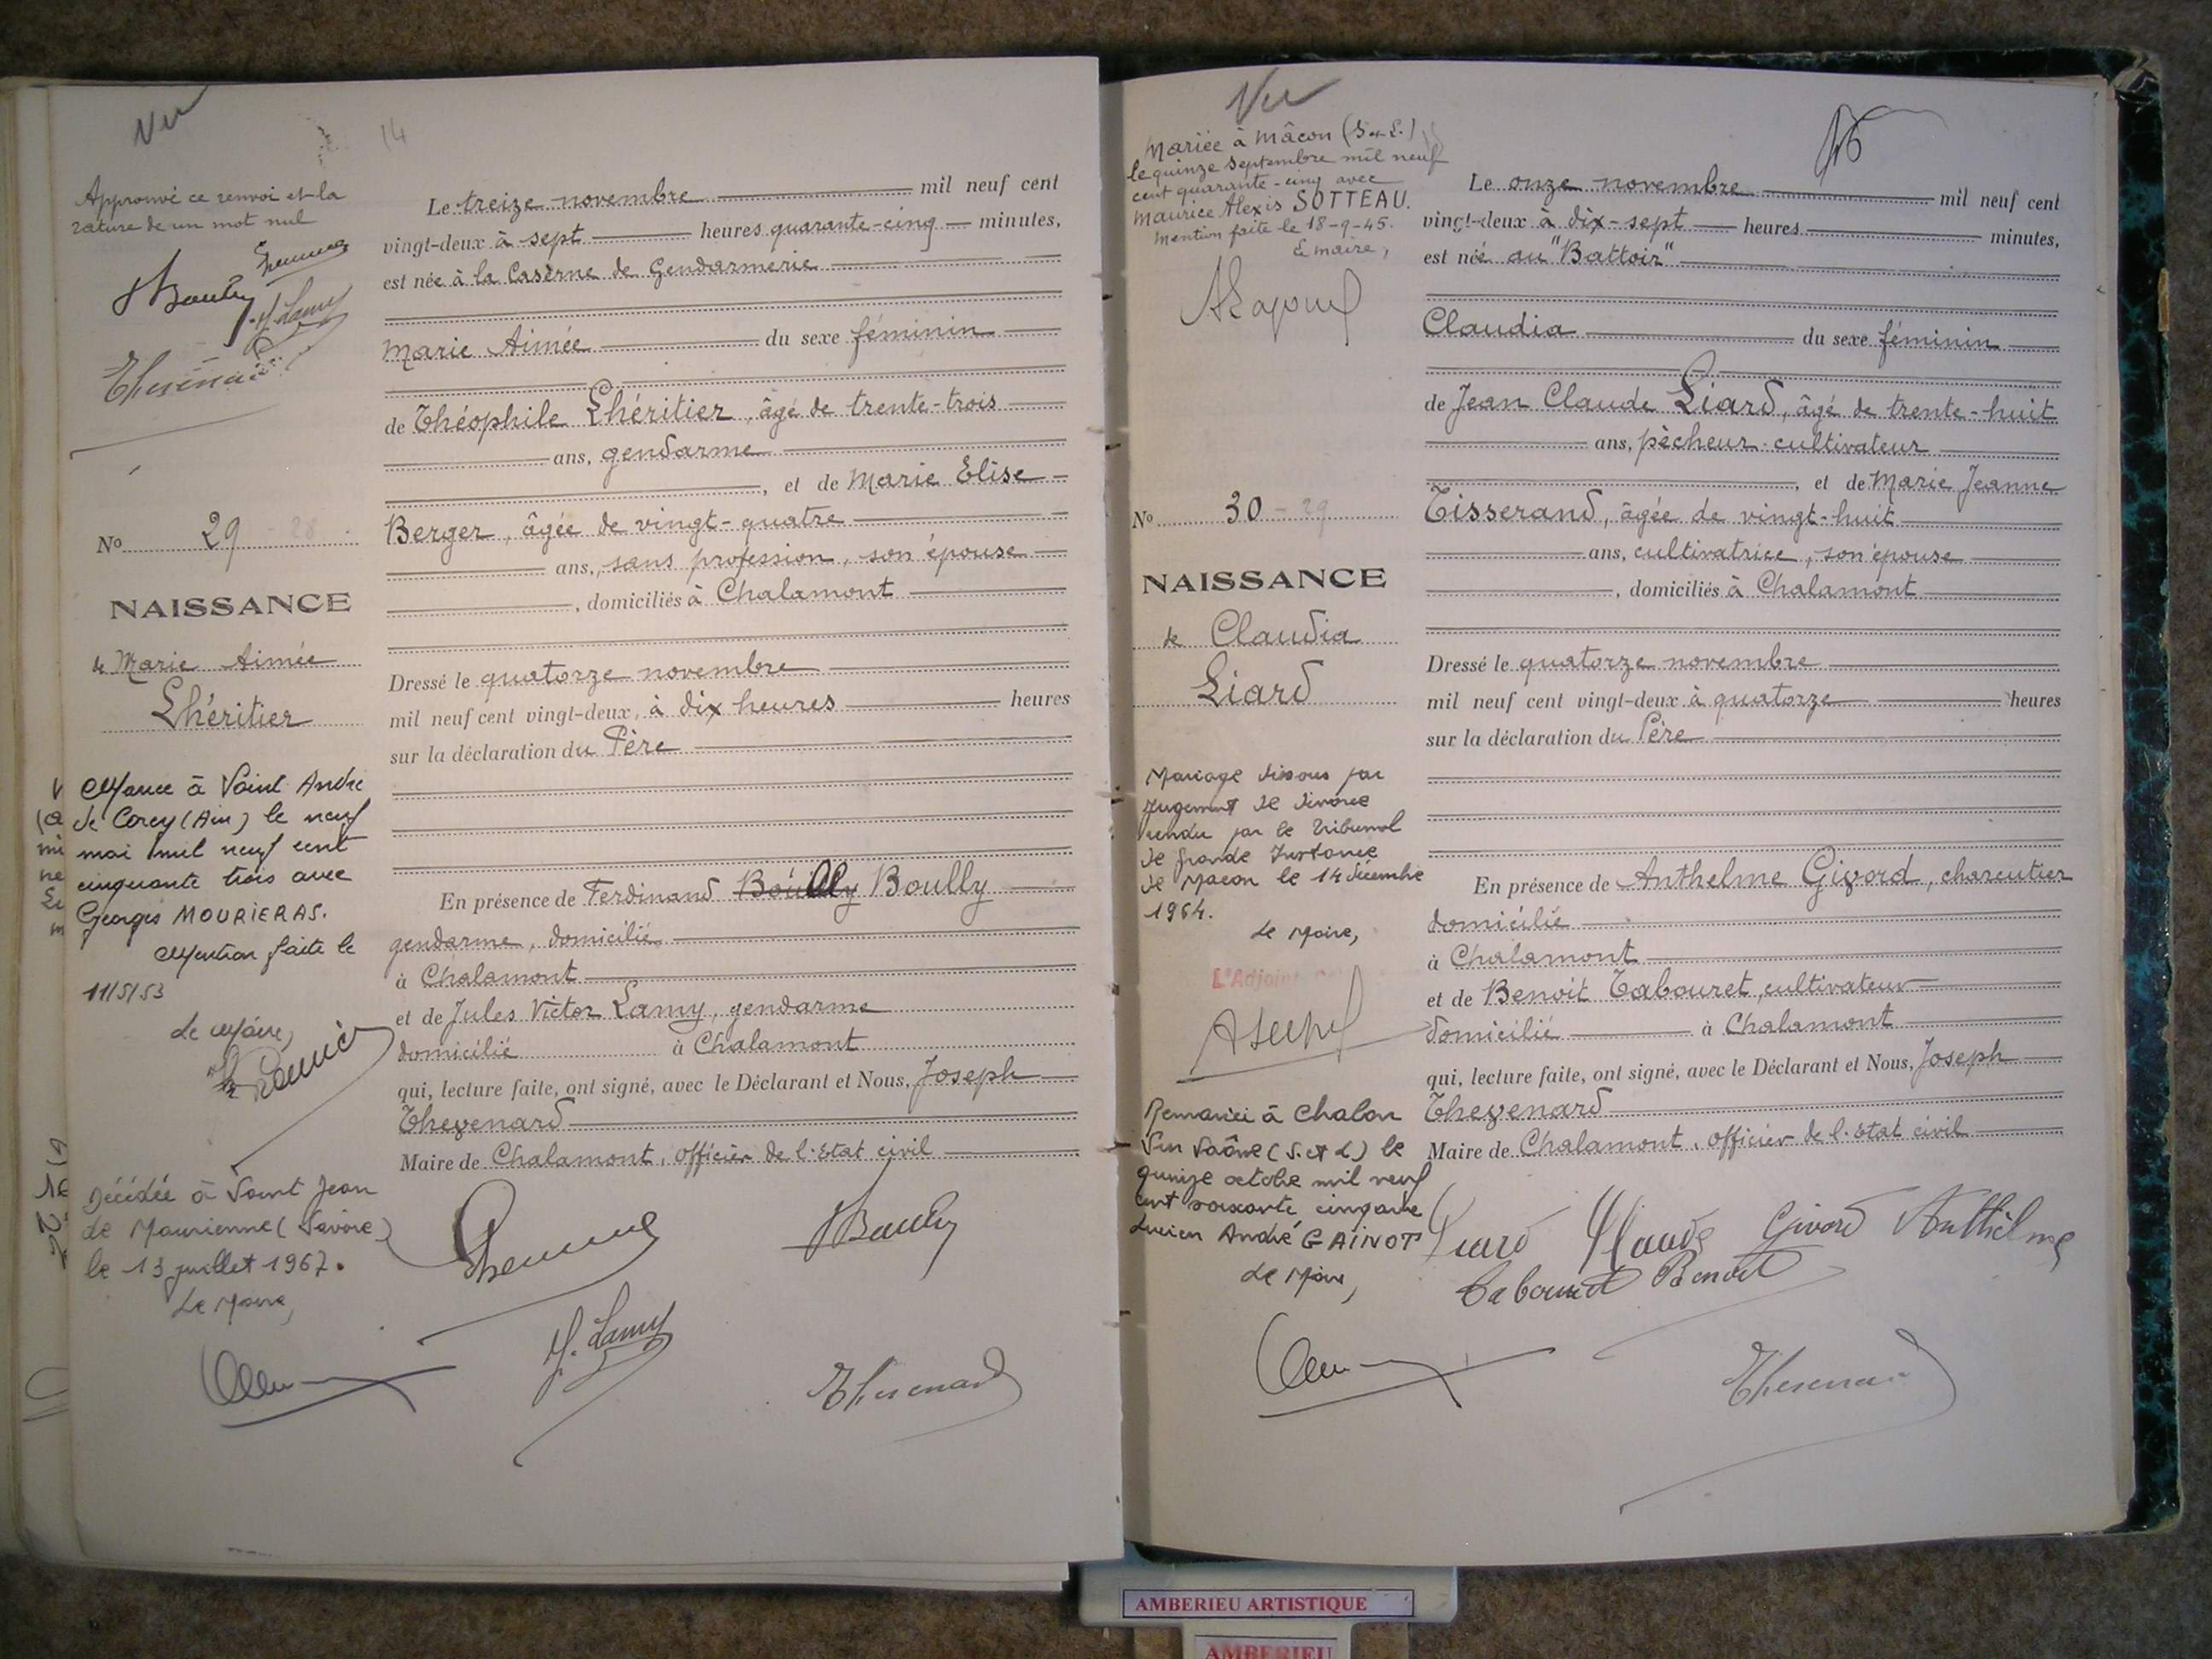 Vu
14
Approuvé ce renvoi et la
rature de un mot nul
Le treize novembre mil neuf cent
vingt-deux à sept heures quarante-cinq minutes,
est née à la Caserne de Gendarmerie
Marie Aimée du sexe féminin
de Théophile Lhéritier, âgé de trente-trois
ans, gendarme
, et de Marie Elise
Berger, âgée de vingt-quatre
ans, sans profession, son épouse
, domiciliés à Chalamont
Dressé le quatorze novembre
mil neuf cent vingt-deux, à dix heures heures
sur la déclaration du Père
En présence de Ferdinand Boully
gendarme, domicilié
à Chalamont
et de Jules Victor Lamy, gendarme
domicilié à Chalamont
qui, lecture faite, ont signé, avec le Déclarant et Nous, Joseph
Thevenard
Maire de Chalamont, officier de l'Etat civil
J. Lamy
Thevenard
No 29 - 28
NAISSANCE
de Marie Aimée
Lhéritier
Mariée à Saint André
de Corcy (Ain) le neuf
mai mil neuf cent
cinquante trois avec
Georges MOURIERAS.
Mention faite le
11/5/53
Le Maire,
Décédée à Saint Jean
de Maurienne (Savoie)
le 13 juillet 1967.
Le Maire,
Vu
Mariée à Mâcon (S-et-L.)
le quinze septembre mil neuf
cent quarante-cinq avec
Maurice Alexis SOTTEAU.
Mention faite le 18-9-45.
Le maire,
No 30 - 29
NAISSANCE
de Claudia
Liard
Mariage dissous par
Jugement de divorce
rendu par le Tribunal
de Grande Instance
de Macon le 14 décembre
1964.
Le Maire,
L'Adjoint
Remariée à Chalon
sur Saône (S. et L) le
quinze octobre mil neuf
cent soixante cinq avec
Lucien André GAINOT
Le Maire,
Le onze novembre mil neuf cent
vingt-deux à dix-sept heures minutes,
est née au "Battoir"
Claudia du sexe féminin
de Jean Claude Liard, âgé de trente-huit
ans, pêcheur-cultivateur
, et de Marie Jeanne
Tisserand, âgée de vingt-huit
ans, cultivatrice, son épouse
, domiciliés à Chalamont
Dressé le quatorze novembre
mil neuf cent vingt-deux à quatorze heures
sur la déclaration du Père
En présence de Anthelme Givord, charcutier
domicilié
à Chalamont
et de Benoit Tabouret, cultivateur
domicilié à Chalamont
qui, lecture faite, ont signé, avec le Déclarant et Nous, Joseph
Thevenard
Maire de Chalamont, officier de l'Etat civil
Liard Claude Givord Anthelme
Tabouret Benoit
Thevenard
AMBERIEU ARTISTIQUE
AMBERIEU